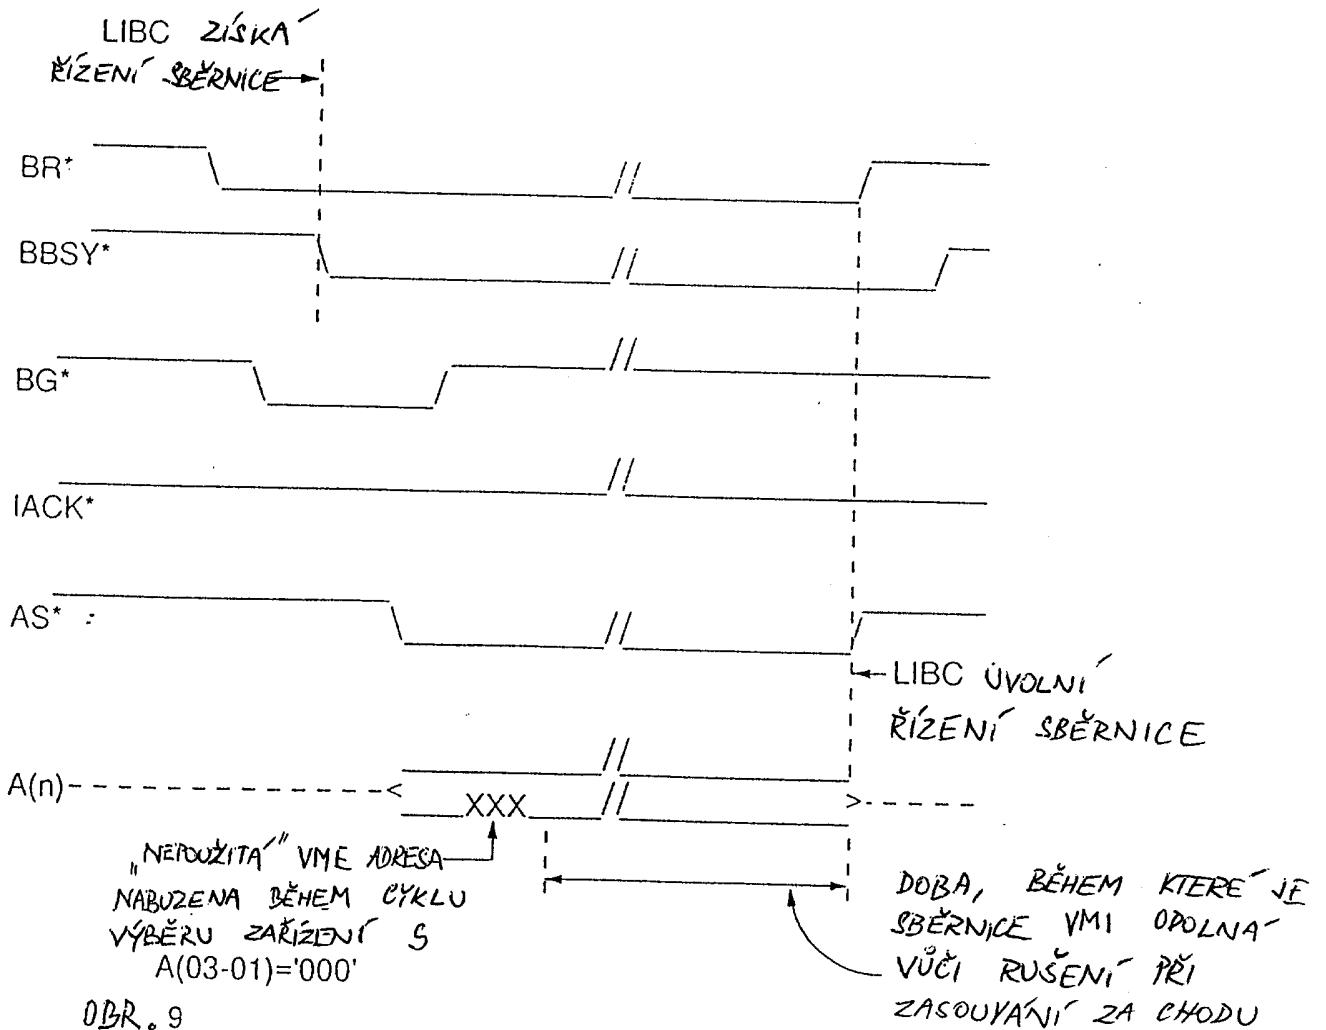 LIBC ZÍSKÁ
ŘÍZENÍ SBĚRNICE
BR*
BBSY*
BG*
IACK*
AS* :
LIBC UVOLNÍ
ŘÍZENÍ SBĚRNICE
A(n)
XXX
„NEPOUŽITÁ" VME ADRESA
NABUZENA BĚHEM CYKLU
VÝBĚRU ZAŘÍZENÍ S
A(03-01)='000'
DOBA, BĚHEM KTERÉ JE
SBĚRNICE VMI ODOLNÁ
VŮČI RUŠENÍ PŘI
ZASOUVÁNÍ ZA CHODU
OBR. 9